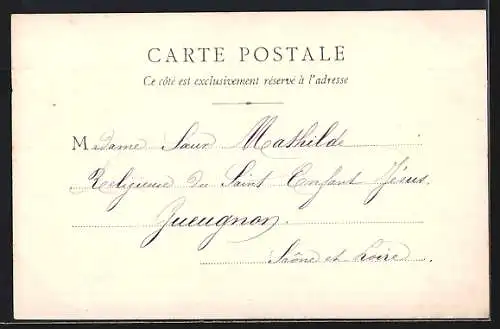 CARTE POSTALE
Ce côté est exclusivement réservé à l'adresse
Madame Sœur Mathilde
Religieuse du Saint Enfant Jésus.
Gueugnon.
Saône et Loire.